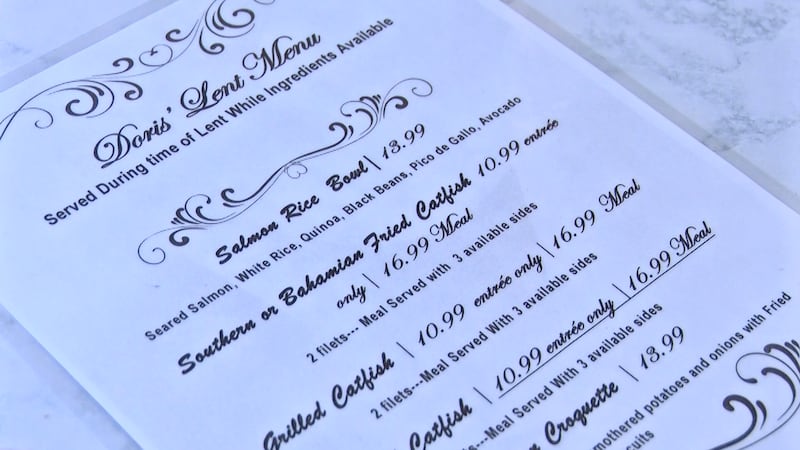 Doris' Lent Menu
Served During time of Lent While Ingredients Available
Salmon Rice Bowl| 13.99
Seared Salmon, White Rice, Quinoa, Black Beans, Pico de Gallo, Avocado
Southern or Bahamian Fried Catfish 10.99 entrée
only | 16.99 Meal
2 filets--- Meal Served with 3 available sides
Grilled Catfish | 10.99 entrée only | 16.99 Meal
2 filets---Meal Served With 3 available sides
Catfish | 10.99 entrée only | 16.99 Meal
---Meal Served With 3 available sides
Croquette | 13.99
potatoes and onions with Fried